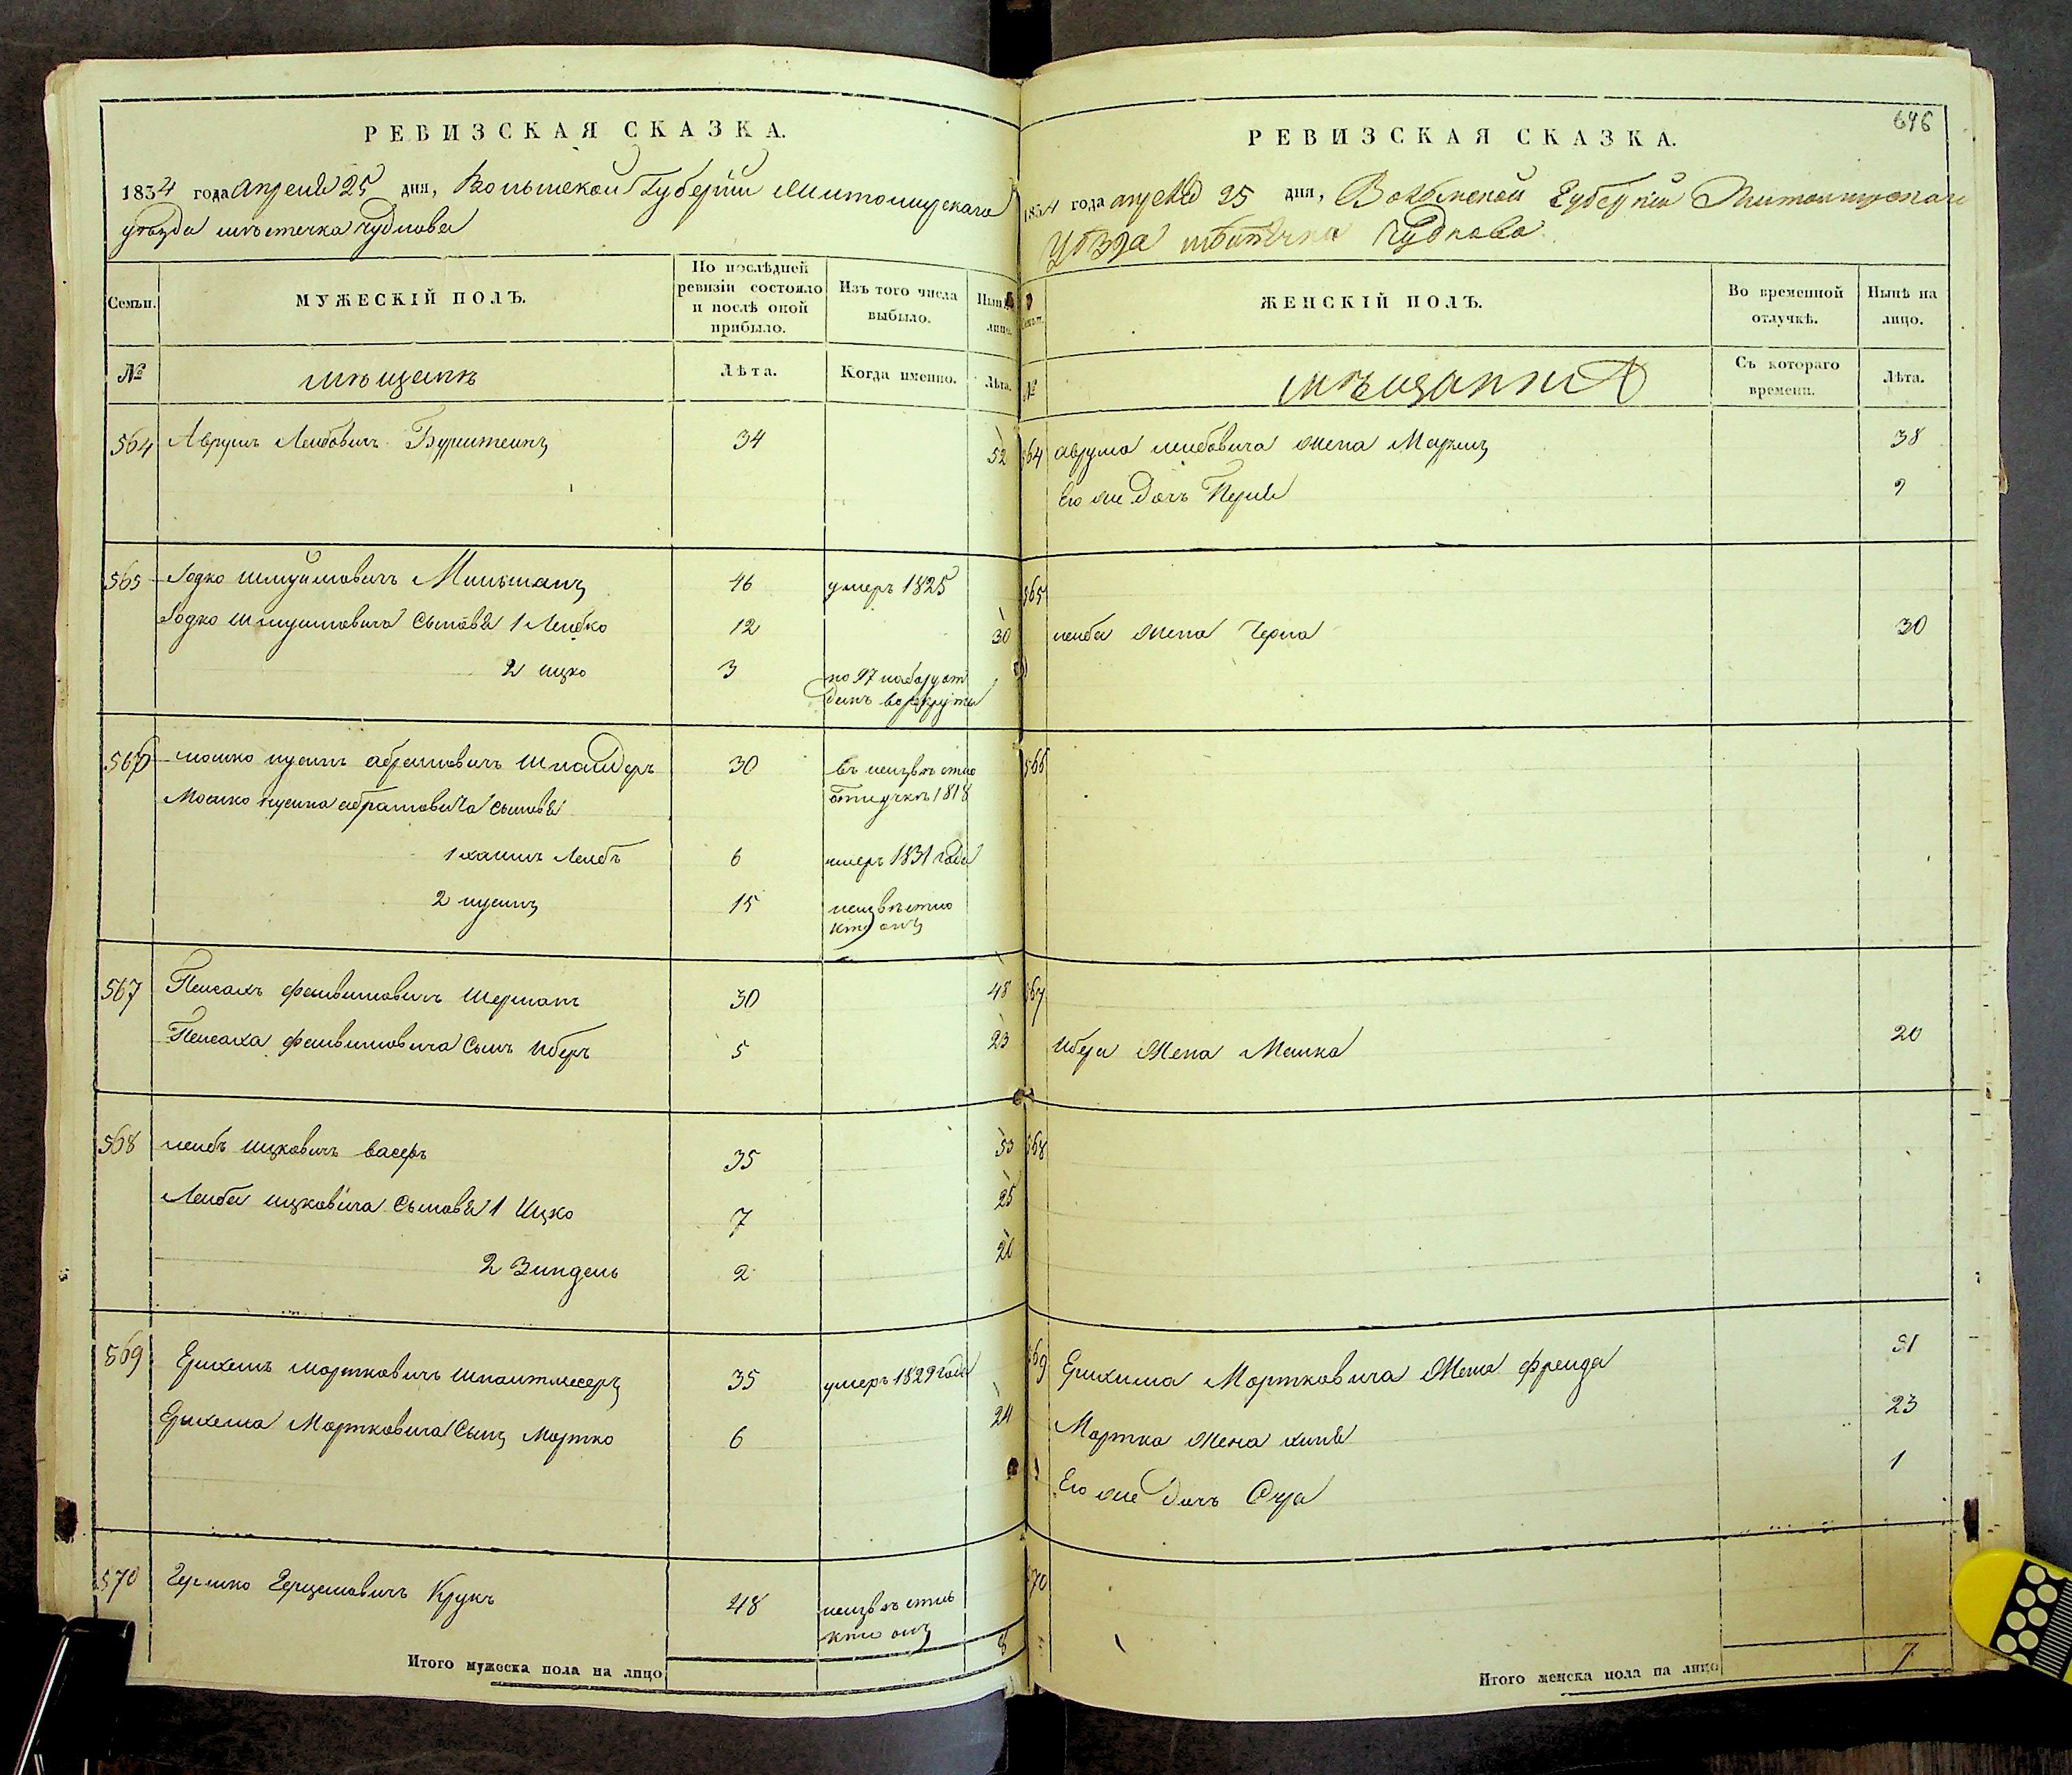 РЕВИЗСКАЯ СКАЗКА.
1834 года апреля 25 дня, Волынской Губернiи Житомирскаго
уѣзда мѣстечка Чуднова
Семьи.
МУЖЕСКІЙ ПОЛЪ.
По послѣдней ревизіи состояло и послѣ оной прибыло.
Изъ того числа выбыло.
Нынѣ на лицо.
№
мѣщанъ
Лѣта.
Когда именно.
Лѣта.
564 Аврумъ Лейбовичъ 34 52
565 Іодко Шмуйловичъ 46 умеръ 1825
Іодко Шмуйловича сыновья 1 Лейбко 12 30
2 Ицко 3 по 97 набору отданъ въ рекруты
566 Мошко Нусинъ Абрамовичъ Шнайдеръ 30 въ неизвѣстной отлучкѣ 1818
Мошко Нусина Абрамовича сыновья
1 Хаимъ Лейбъ 6 умеръ 1831 года
2 Нусинъ 15 неизвѣстно кто онъ
567 Пейсахъ Файвишовичъ Шерманъ 30 48
Пейсаха Файвишовича сынъ Иберъ 5 23
568 Лейбъ Ицковичъ Васеръ 35 53
Лейба Ицковича сыновья 1 Ицко 7 25
2 Зиндель 2 20
569 Ерихемъ Мортковичъ 35 умеръ 1829 года
Ерихема Мортковича сынъ Мортко 6 24
570 Гершко Герцеловичъ Крукъ 48 неизвѣстно кто онъ
Итого мужеска пола на лицо 8
646
РЕВИЗСКАЯ СКАЗКА.
1834 года апреля 25 дня, Волынской Губернiи Житомирскаго
Уѣзда мѣстечка Чуднова
Семьи.
ЖЕНСКІЙ ПОЛЪ.
Во временной отлучкѣ.
Нынѣ на лицо.
№
мѣщанъ
Съ котораго времени.
Лѣта.
564 Аврума Лейбовича жена 38
Его же дочь Перля 9
565
Лейба жена Черна 30
566
567
Ибера жена Малка 20
568
569 Ерихима Мортковича жена Фрейда 51
Мортка жена 23
Его же дочь 1
570
Итого женска пола на лицо 7